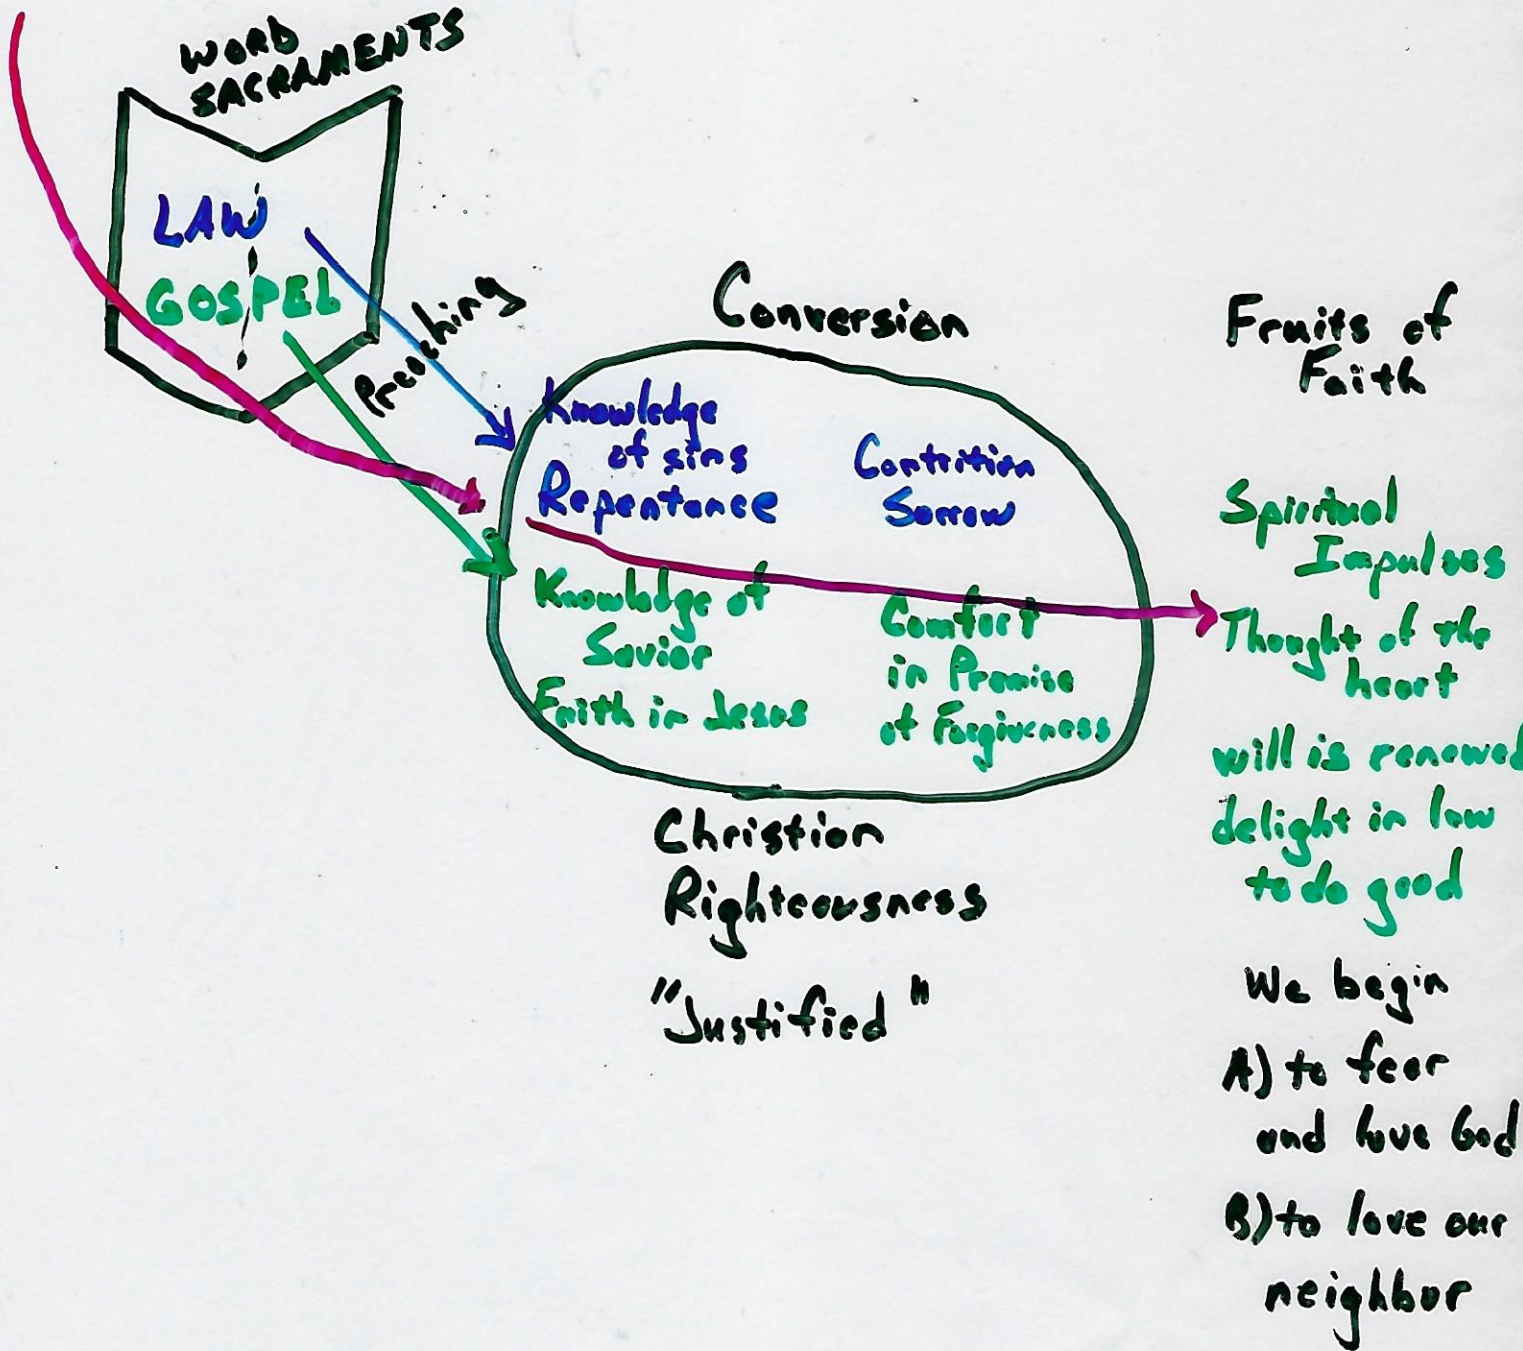 WORD
SACRAMENTS
LAW
GOSPEL
Preaching
Conversion
Knowledge
of sins
Repentance
Contrition
Sorrow
Knowledge of
Savior
Faith in Jesus
Comfort
in Promise
of Forgiveness
Christian
Righteousness
"Justified"
Fruits of
Faith
Spiritual
Impulses
Thought of the
heart
will is renewed
delight in law
to do good
We begin
A) to fear
and love God
B) to love our
neighbor